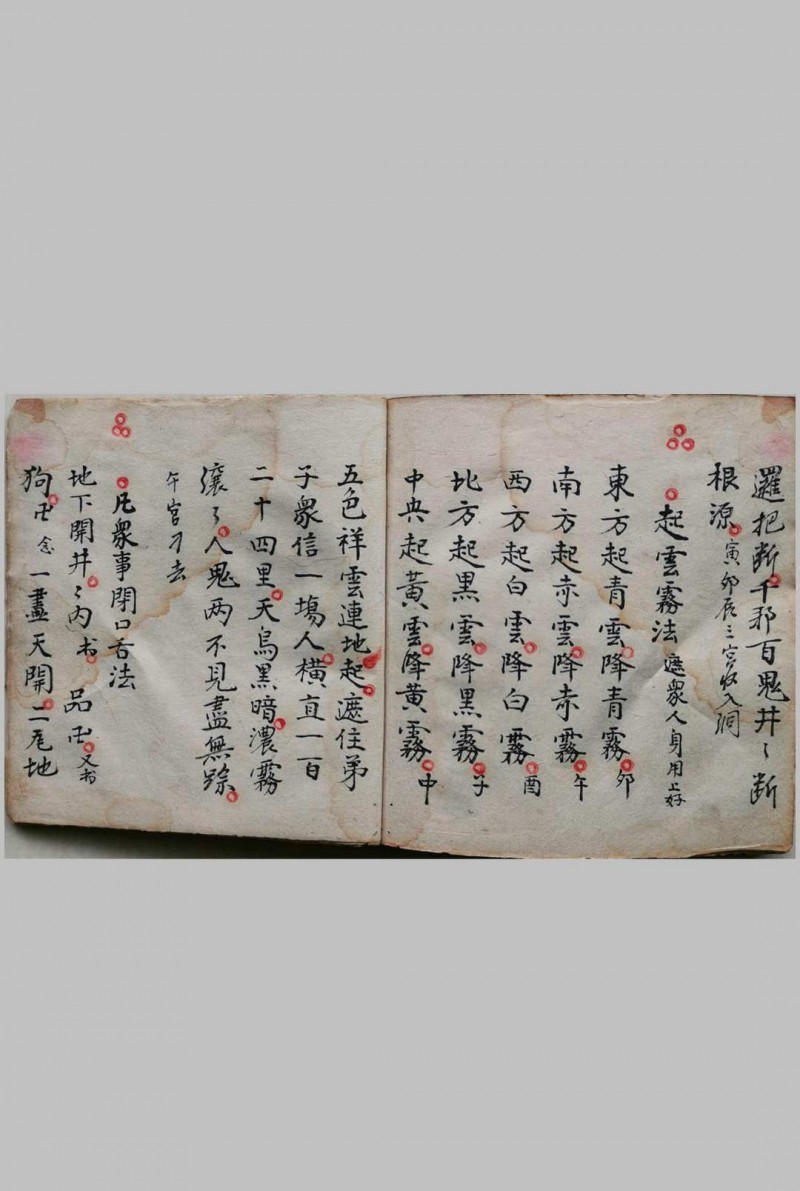 邏把断千邪百鬼井〻断
根源寅卯辰三宮收入洞
起雲霧法 遮衆人身用上好
東方起青雲降青霧卯
南方起赤雲降赤霧午
西方起白雲降白霧酉
北方起黑雲降黑霧子
中央起黃雲降黃霧中
五色祥雲連地起遮住弟
子衆信一塲人橫直一百
二十四里天烏黑暗濃霧
滚〻人鬼两不見盡無踪
午宮刀去
凡衆事閉口舌法
地下開井〻内书 品卍又书
狗卍念一畫天開二尾地